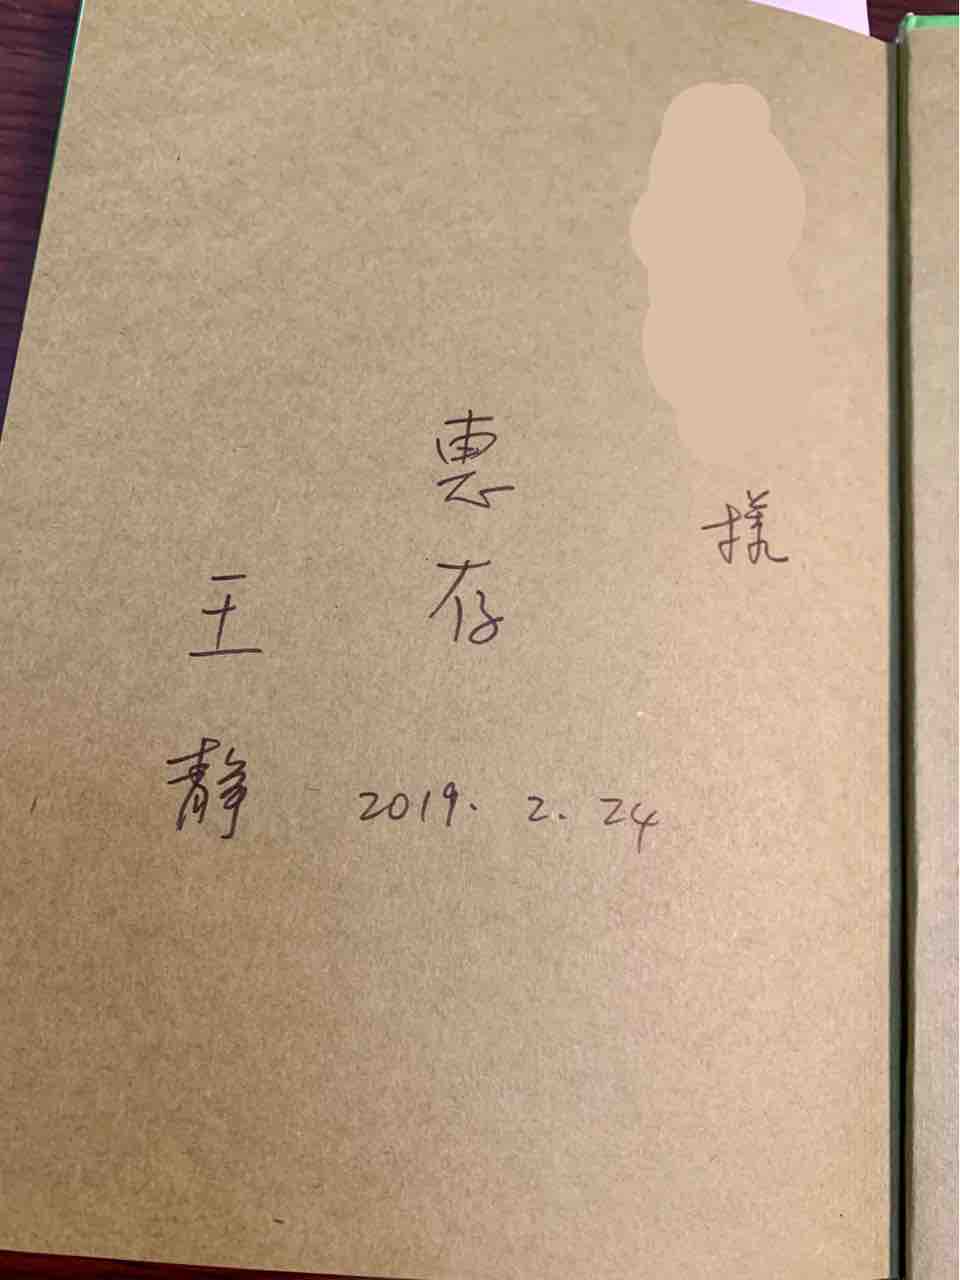 様
惠存
王静
2019. 2. 24